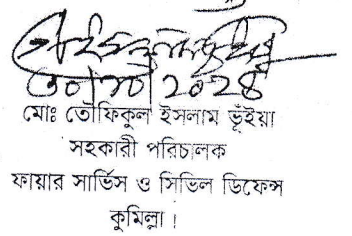 মোঃ তৌফিকুল ইসলাম ভূঁইয়া
সহকারী পরিচালক
ফায়ার সার্ভিস ও সিভিল ডিফেন্স
কুমিল্লা।